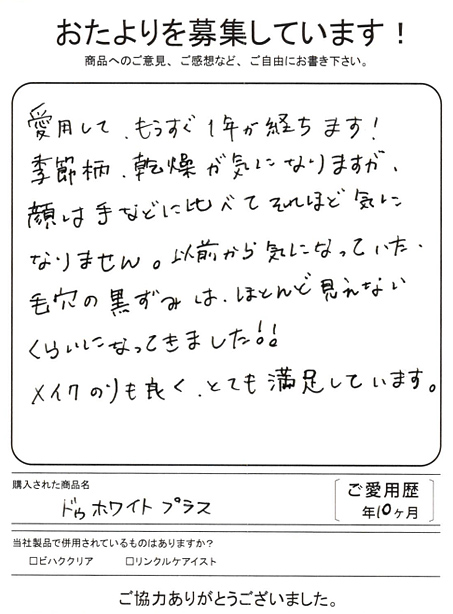 おたよりを募集しています！
商品へのご意見、ご感想など、ご自由にお書き下さい。
愛用して、もうすぐ1年が経ちます！
季節柄、乾燥が気になりますが、
顔は手などに比べてそれほど気に
なりません。以前から気になっていた、
毛穴の黒ずみは、ほとんど見えない
くらいになってきました!!
メイクのりも良く、とても満足しています。
購入された商品名
ドゥホワイト プラス
ご愛用歴
年10ヶ月
当社製品で併用されているものはありますか？
□ビハククリア □リンクルケアイスト
ご協力ありがとうございました。